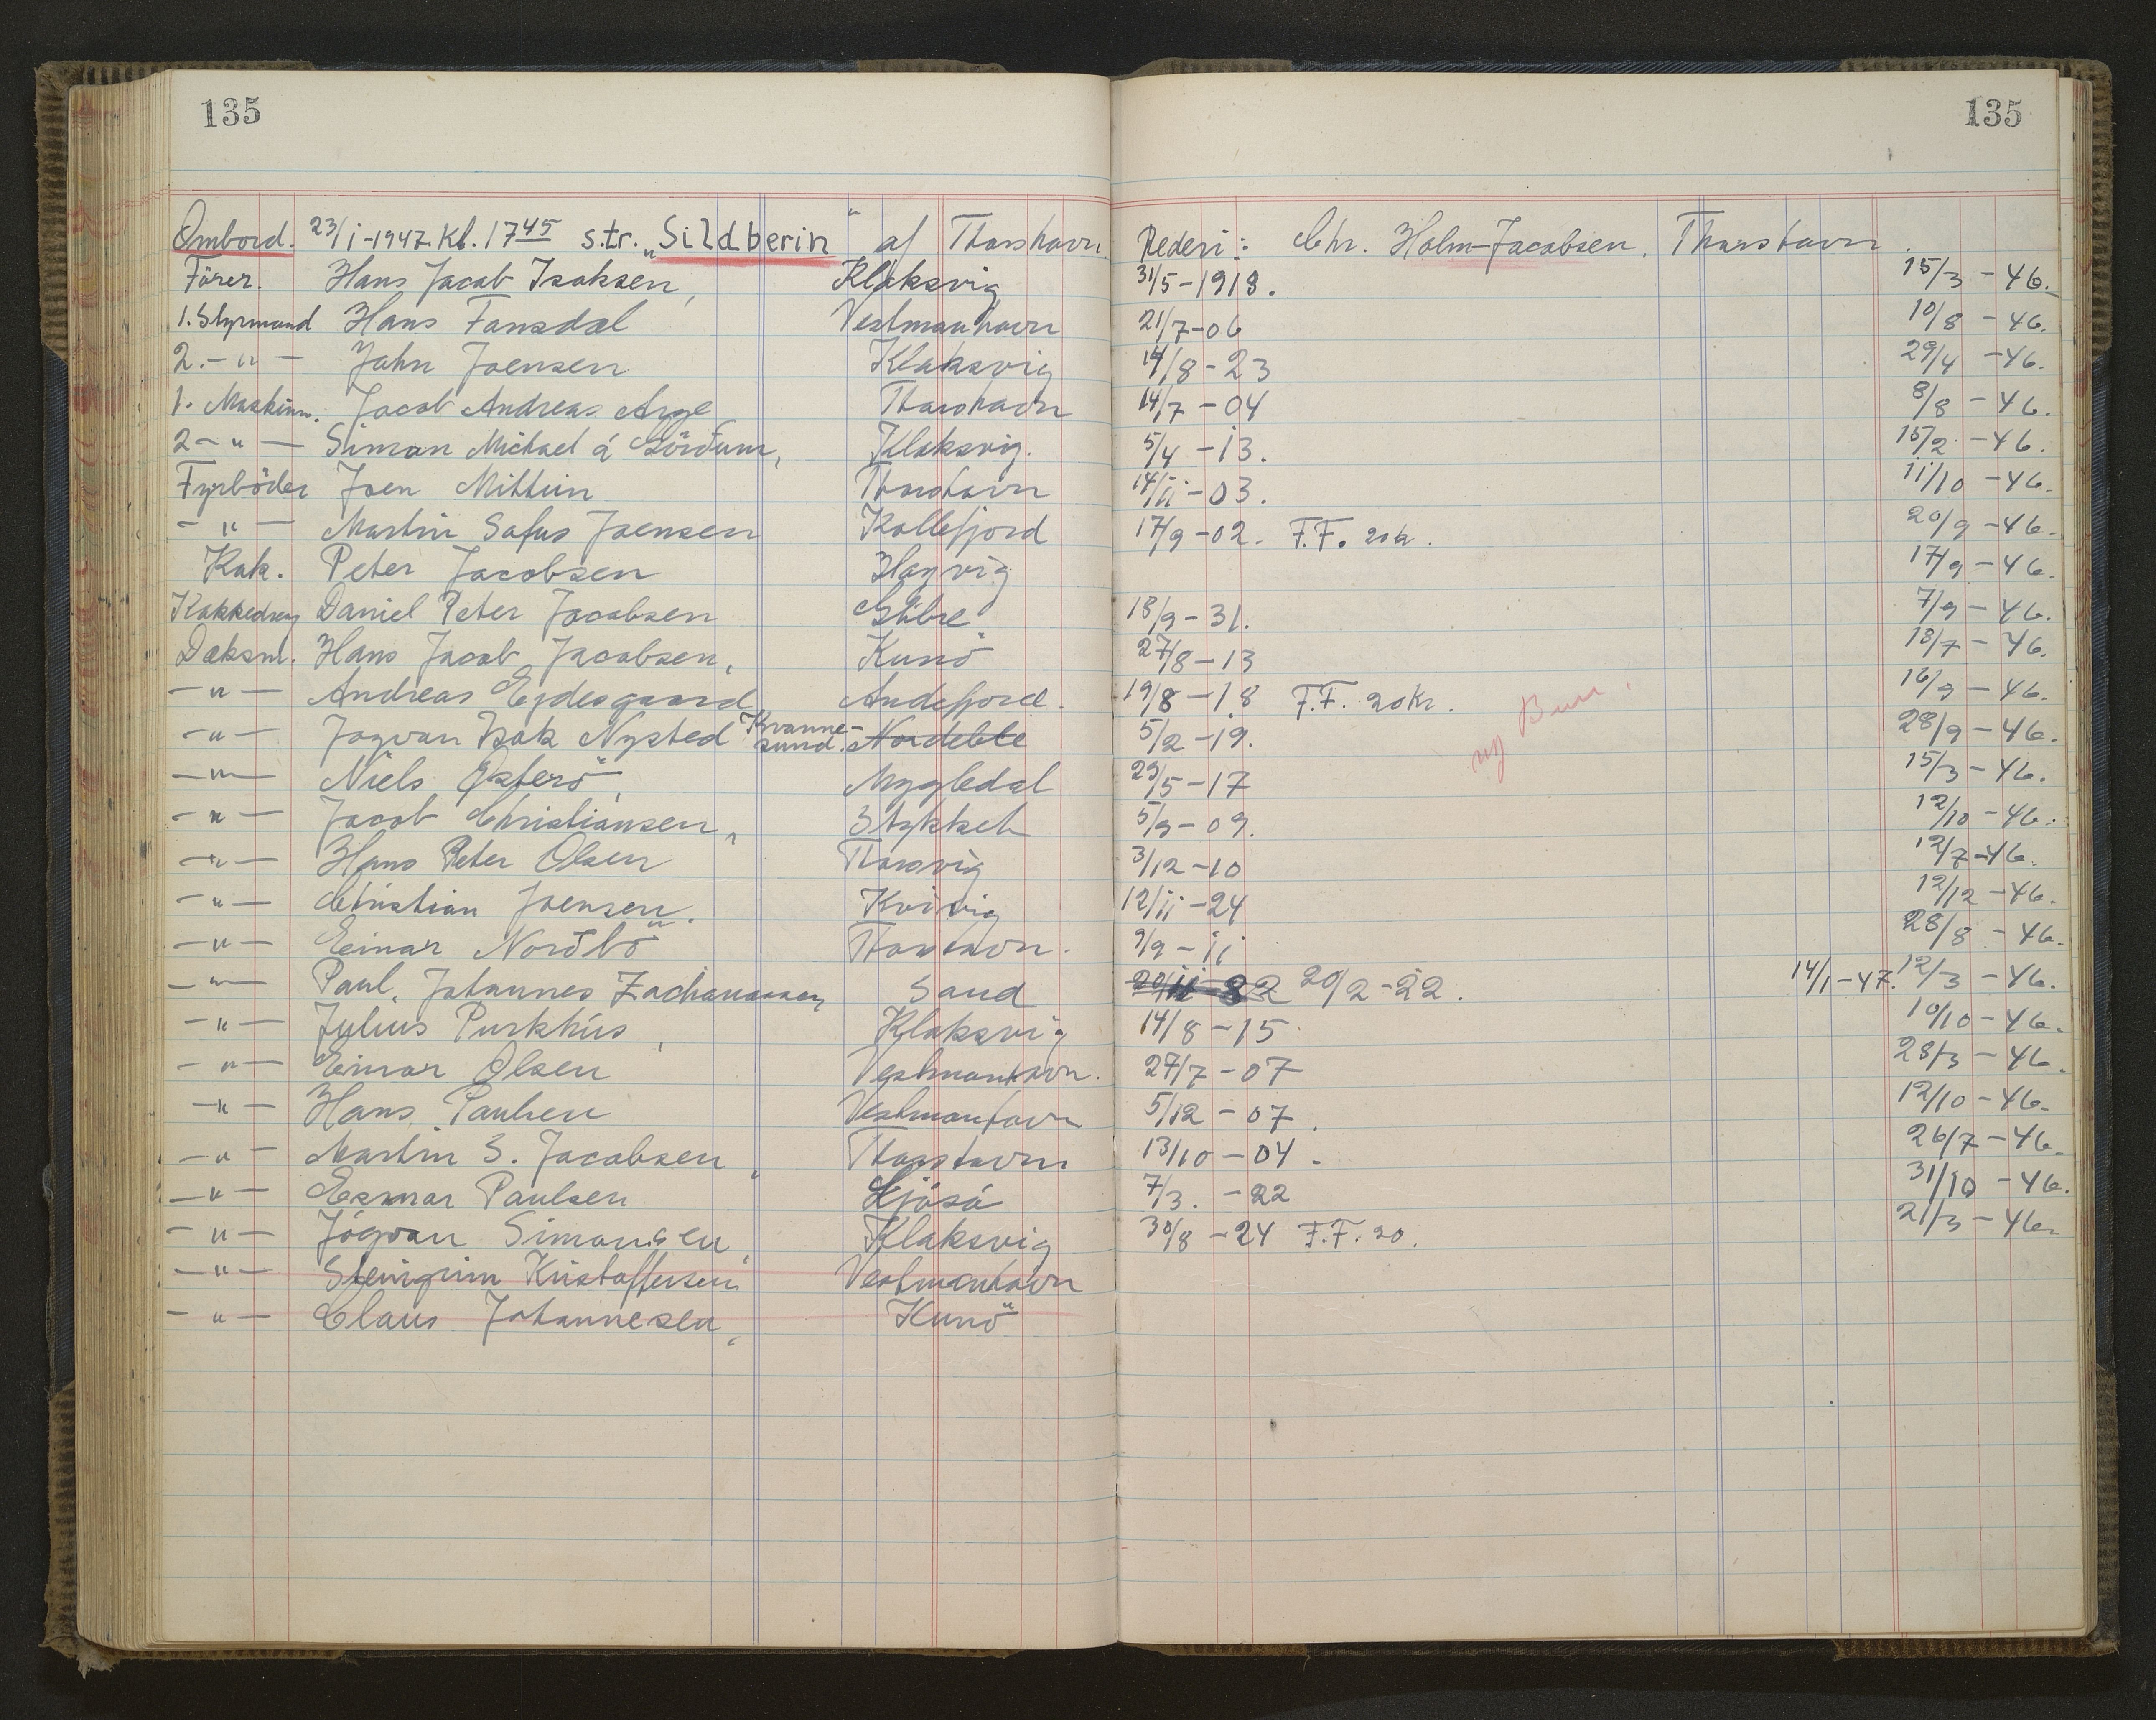 135 135
Ombord. 23/1-1947. Kl. 1745 s.tr. "Sildberin" af Thorshavn. Rederi: Chr. Holm-Jacobsen. Thorshavn.
Förer. Hans Jacob Isaksen, Klaksvig 31/5-1918. 15/3-46.
1. Styrmand Hans Fansdal Vestmanhavn 21/7-06 10/8-46.
2.-"- John Joensen Klaksvig 14/8-23 29/4-46.
1. Maskinm. Jacob Andreas Arge Thorshavn 14/7-04 8/8-46.
2-"- Simon Michael á Görðum, Klaksvig. 5/4-13. 15/2-46.
Fyrböder Joen Mittun Thorshavn 14/11-03. 11/10-46.
-"- Martin Sofus Joensen Kollefjord 17/9-02. F.F. 20kr. 20/9-46.
Kok. Peter Jacobsen Hayvig 17/9-46.
Kokkedreng Daniel Peter Jacobsen Glibre 18/9-31. 7/9-46.
Dæksm. Hans Jacob Jacobsen, Kunö 27/8-13 18/7-46.
-"- Andreas Ejdesgaard Andefjord. 19/8-18 F.F. 20Kr. 16/9-46.
-"- Jogvan Isak Nysted Kvannesund. Nordeble 5/2-19. 28/9-46.
-"- Niels Österö, Mygledal 29/5-17 15/3-46.
-"- Jacob Christiansen, Stykket 5/9-09. 12/10-46.
-"- Hans Peter Olsen Thorsvig 3/12-10 12/7-46.
-"- Christian Joensen. Kvivig 12/11-24 12/12-46.
-"- Einar Norðbö Thorshavn. 9/9-11 28/8-46.
-"- Paul. Johannes Zachariassen Sand 20/2-22. 14/1-47. 12/3-46.
-"- Julius Purkhús, Klaksvig 14/8-15 10/10-46.
-"- Einar Olsen Vestmanhavn. 27/7-07 28/3-46.
-"- Hans Paulsen Vestmanhavn 5/12-07. 12/10-46.
-"- Martin S. Jacobsen, Thorshavn 13/10-04. 26/7-46.
-"- Esmar Paulsen Ljósá 7/3.-22 31/10-46.
-"- Jógvan Simonsen, Klaksvig 30/8-24 F.F. 20. 21/3-46.
-"- Steingrim Kristoffersen Vestmanhavn
-"- Claus Johannesen, Kunö